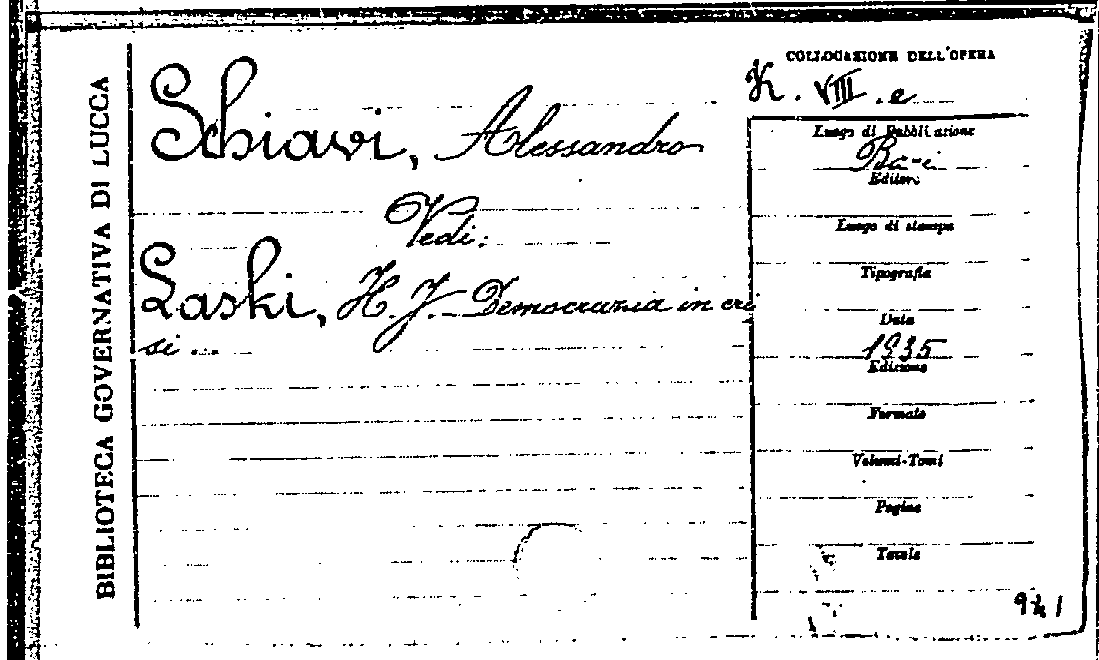 BIBLIOTECA GOVERNATIVA DI LUCCA
Schiavi, Alessandro
Vedi:
Laski, H. J. Democrazia in cri
si ...
COLLOCAZIONE DELL'OPERA
K. VIII. e
Luogo di Pubblicazione
Bari
Editori
Luogo di stampa
Tipografia
Data
1935
Edizione
Formato
Volumi-Tomi
Pagine
Tavole